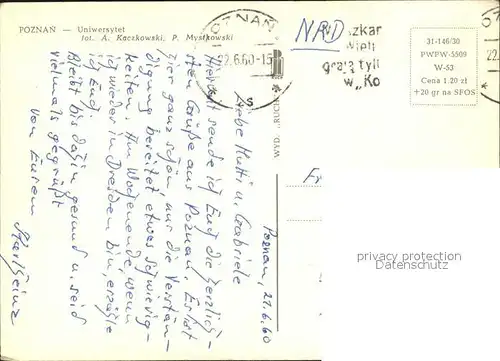 POZNAŃ — Uniwersytet
fot. A. Kaczkowski, P. Mystkowski
POZNAŃ
22.6.60-15
s
NRD
zkar
grają tyl
w „Ko
31-146/30
PWPW-5509
W-53
Cena 1.20 zł
+20 gr na SFOS
22.
WYD. „RUCH"
Poznan, 21.6.60
Liebe Mutti u. Gabriele
Hiermit sende ich Euch die herzlich-
sten Grüße aus Poznan. Es ist
hier ganz schön nur die Verstän-
digung bereitet etwas schwierig-
keiten. Am Wochenende, wenn
ich wieder in Dresden bin, erzähle
ich Euch.
Bleibt bis dahin gesund u. seid
vielmals gegrüßt
von Eurem
Karlheinz
Fr
privacy protection
Datenschutz